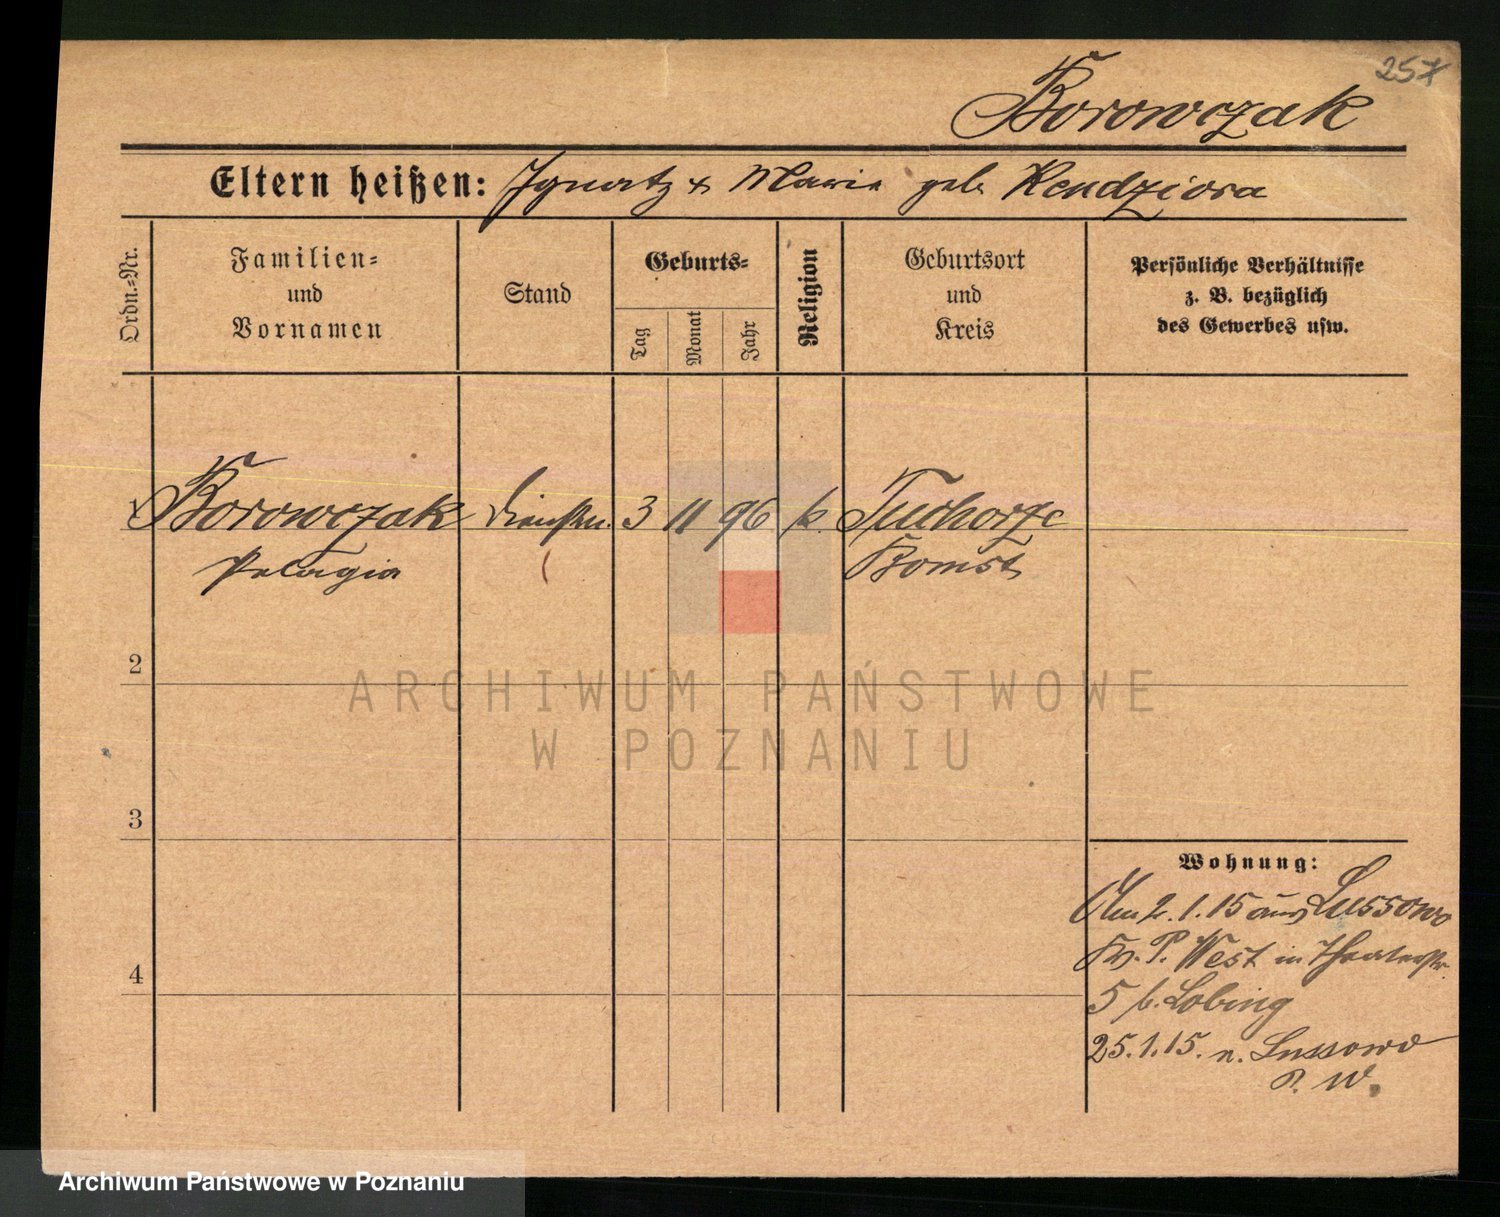 257
Borowczak
Eltern heißen: Ignatz & Marie geb. Kendziora
Ordn.=Nr.
Familien=
und
Vornamen
Stand
Geburts=
Tag
Monat
Jahr
Religion
Geburtsort
und
Kreis
Persönliche Verhältnisse
z. B. bezüglich
des Gewerbes usw.
1 Borowczak Dienstm. 3 11 96 k. Tuchorze
Pelagia Bomst
2
3
4
Wohnung:
Am 2.1.15 aus Lussowo
Kr. P. West in Theaterstr.
5 b. Lobing
25.1.15. n. Lussowo
P. W.
ARCHIWUM PAŃSTWOWE
W POZNANIU
Archiwum Państwowe w Poznaniu